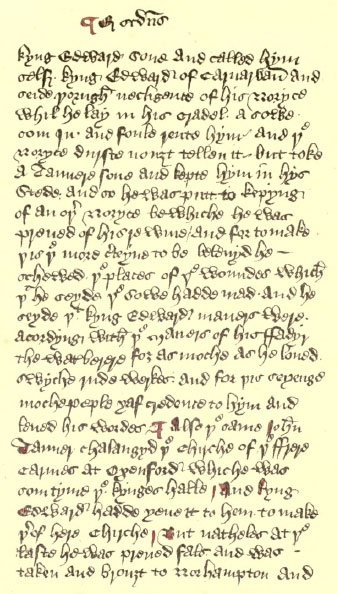 ¶ E scd̄us
kyng Edward sone and called hym
self kyng Edward of Carnarvan and
seide þorugh necligence of his noryce
whil he lay in his cradol a sowe
com in and foule rente hym and þe
noryce durste nouȝt tellen it but toke
a Tannere sone and kepte hym in hys
stede and so he was putt to kepyng
of an oþer noryce be whiche he was
preued of his rewme and for to make
þis þe more sleyne to be leeuyd he
schewed þe places of þe woundes which
þt he seyde þe sowe hadde mad and he
seyde þt kyng Edward maners were
acordyng with þe maners of his fadyr
the watherere for as moche as he loued
swyche rude werkes and for þis seyenge
moche peple yaf credence to hym and
leued his wordes ¶ also þe same John
Tanner chalangyd þe chirche of þe ffrere
Carmes at Oxenford whiche was
somtyme þe kynges halle and kyng
Edward hadde yeue it to hem to make
þer of here chirche but natheles at þe
laste he was preued fals and was
taken and brouȝt to Norhampton and